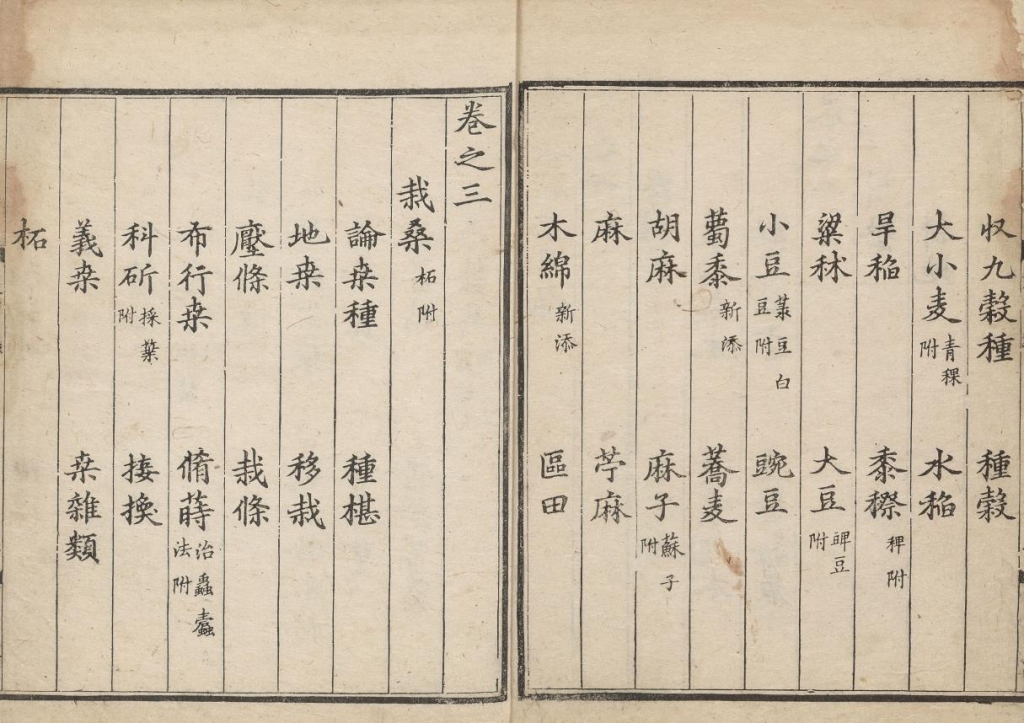 収九穀種 種穀
大小麦 青稞附 水稲
旱稲 黍穄 稗附
粱秫 大豆 䝁豆附
小豆 菉豆白豆附 豌豆
蜀黍 新添 蕎麦
胡麻 麻子 蘇子附
麻 苧麻
木綿 新添 區田
卷之三
栽桑 柘附
論桒種 種椹
地桒 移栽
壓條 栽條
布行桒 脩蒔 治蟲蠹法附
科斫 採葉附 接換
義桒 桒雜類
柘